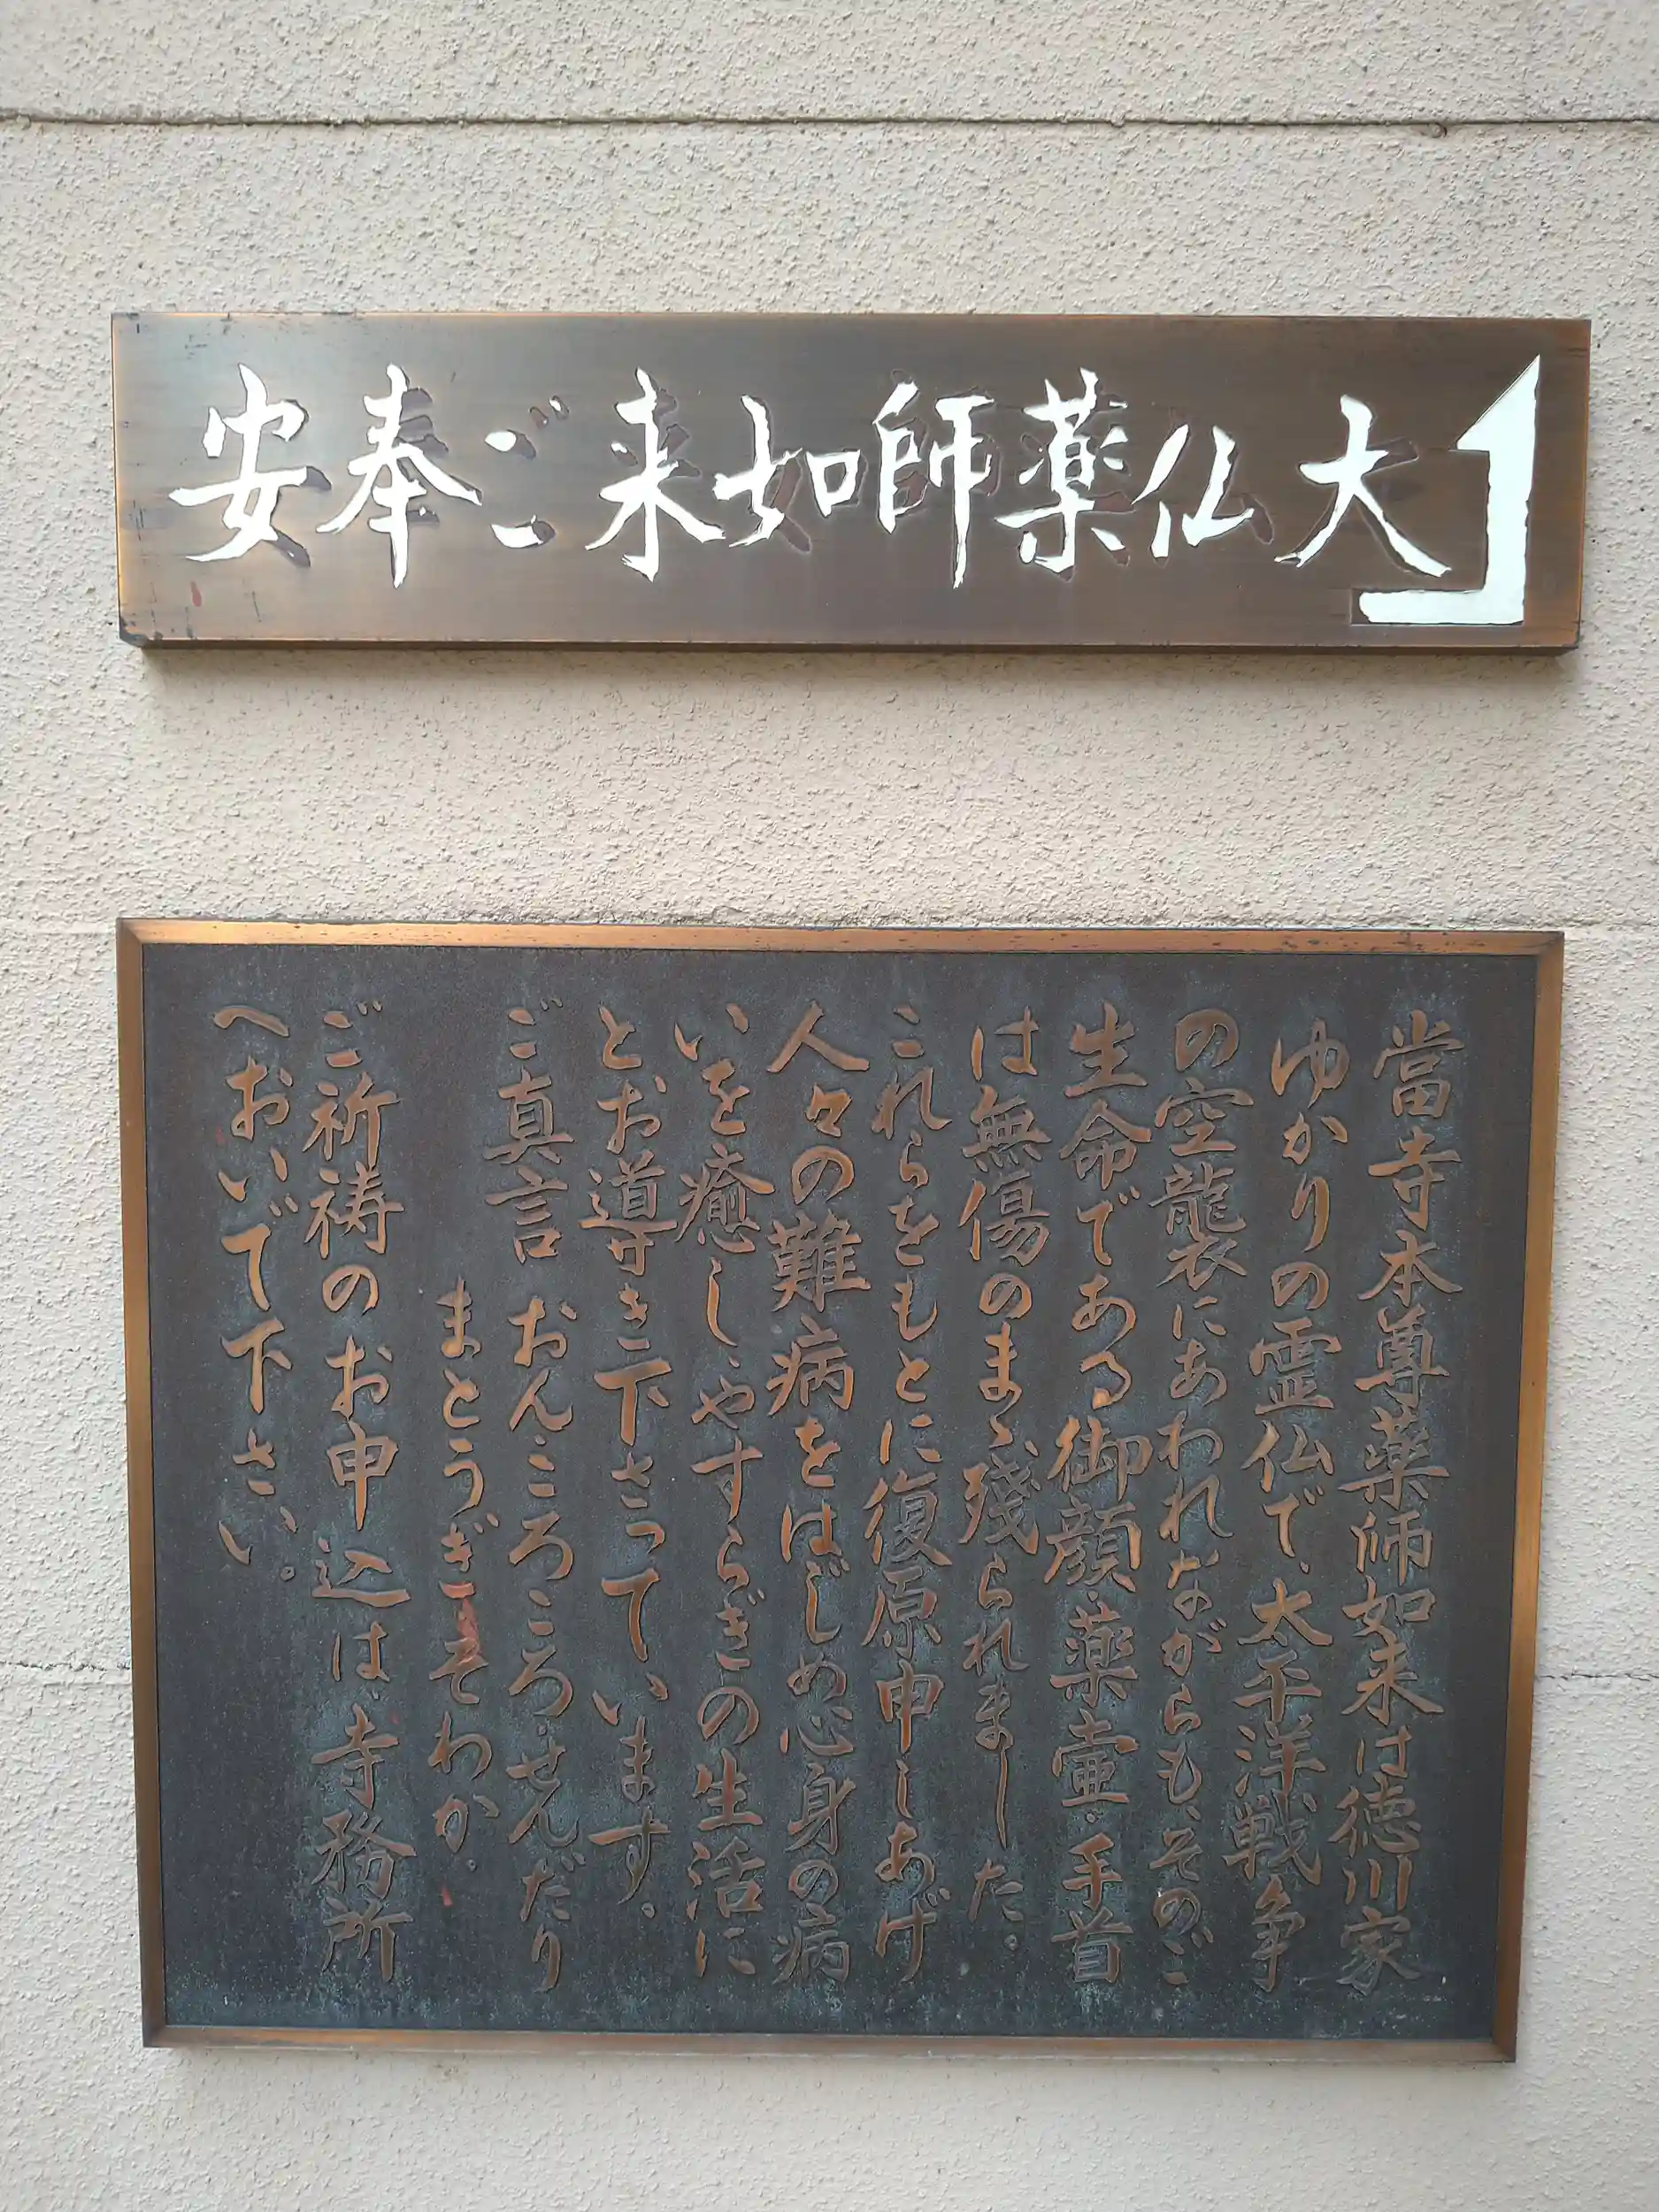 大仏薬師如来ご奉安
當寺本尊薬師如来は徳川家
ゆかりの霊仏で、太平洋戦争
の空襲にあわれながらも、そのご
生命である御顔・薬壷・手首
は無傷のまゝ残られました。
これらをもとに復原申しあげ
人々の難病をはじめ心身の病
いを癒し、やすらぎの生活に
とお導き下さっています。
ご真言 おん・ころころ・せんだり
まとうぎ・そわか・
ご祈祷のお申込は、寺務所
へおいで下さい。